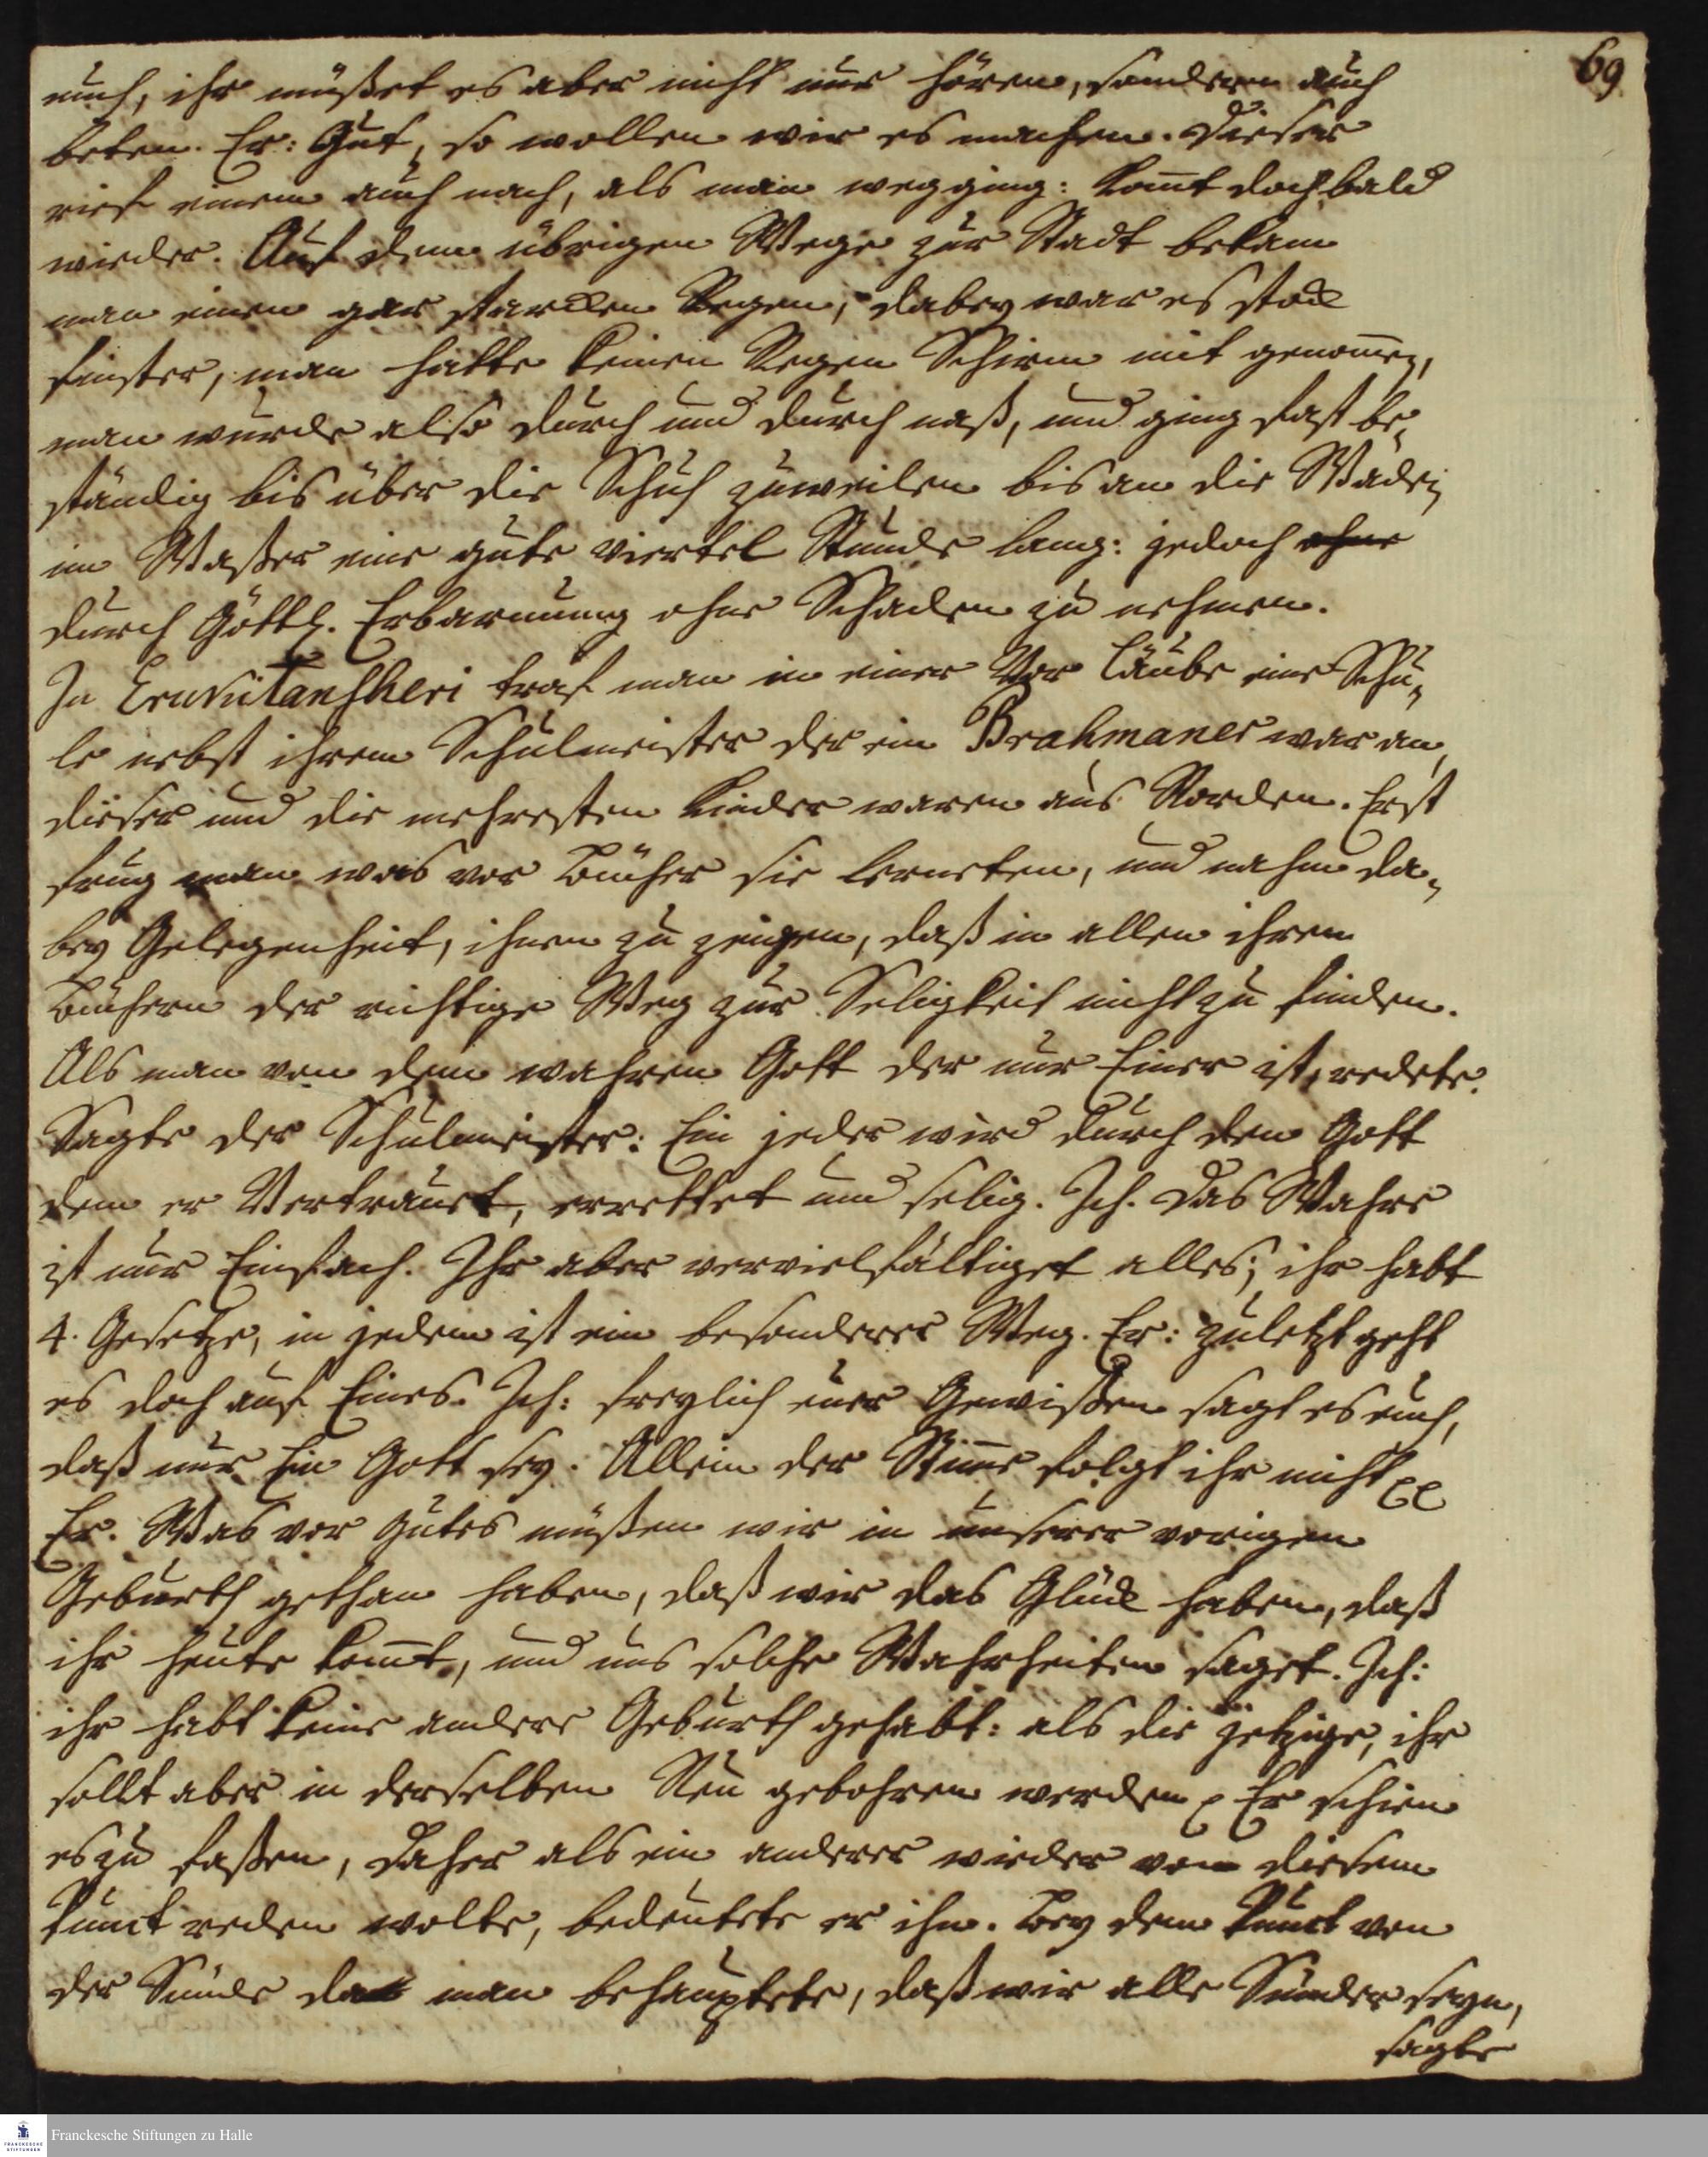 69
euch, ihr müßet es aber nicht nur hören, sondern auch
beten. Er: Gut, so wollen wir es machen. Dieser
rief einem auch nach, als man wegging: Kom̄t doch bald
wieder. Auf dem übrigen Wege zur Stadt bekam
man einen gar starcken Regen, dabey war es stock
finster, man hatte keinen Regen Schirm mit genom̄en,
man wurde also durch und durch naß, und ging fast be-
ständig bis über die Schuh zuweilen bis an die Waden
im Waßer eine gute viertel Stunde lang: jedoch ohne
durch Göttl. Erbarmung ohne Schaden zu nehmen.
In Erukitanscheri traf man in einer Vor Läube eine Schu-
le nebst ihrem Schulmeister der ein Brahmaner war an,
dieser und die mehresten Kinder waren aus Norden. Erst
frug man was vor Bücher sie lerneten, und nahm da-
bey Gelegenheit, ihnen zu zeigen, daß in allen ihren
Büchern der richtige Weg zur Seligkeit nicht zu finden.
Als man von dem wahren Gott der nur Einer ist, redete.
Sagte der Schulmeister: Ein jeder wird durch den Gott
dem er Vertrauet, errettet und selig. Ich. Das Wahre
ist nur Einfach. Ihr aber vervielfältiget alles; ihr habt
4. Gesetze, in jedem ist ein besonderer Weg. Er: zuletzt geht
es doch auf Eines. Ich: freylich euer Gewißen sagt es euch,
daß nur Ein Gott sey. Allein der Stim̄e folgt ihr nicht
Er. Was vor Gutes müßen wir in unserer vorigen
Geburth gethan haben, daß wir das Glück haben, daß
ihr heute kom̄t, und uns solche Wahrheiten saget. Ich:
ihr habt keine andere Geburth gehabt: als die jetzige, ihr
sollt aber in derselben Neu gebohren werden Er schien
es zu faßen, daher als ein anderer wieder von diesem
Punct reden wolte, bedeutete er ihn. Bey dem Punct von
der Sünde da man behauptete, daß wir alle Sünder seyn,
sagte
Franckesche Stiftungen zu Halle
FRANCKESCHE STIFTUNGEN